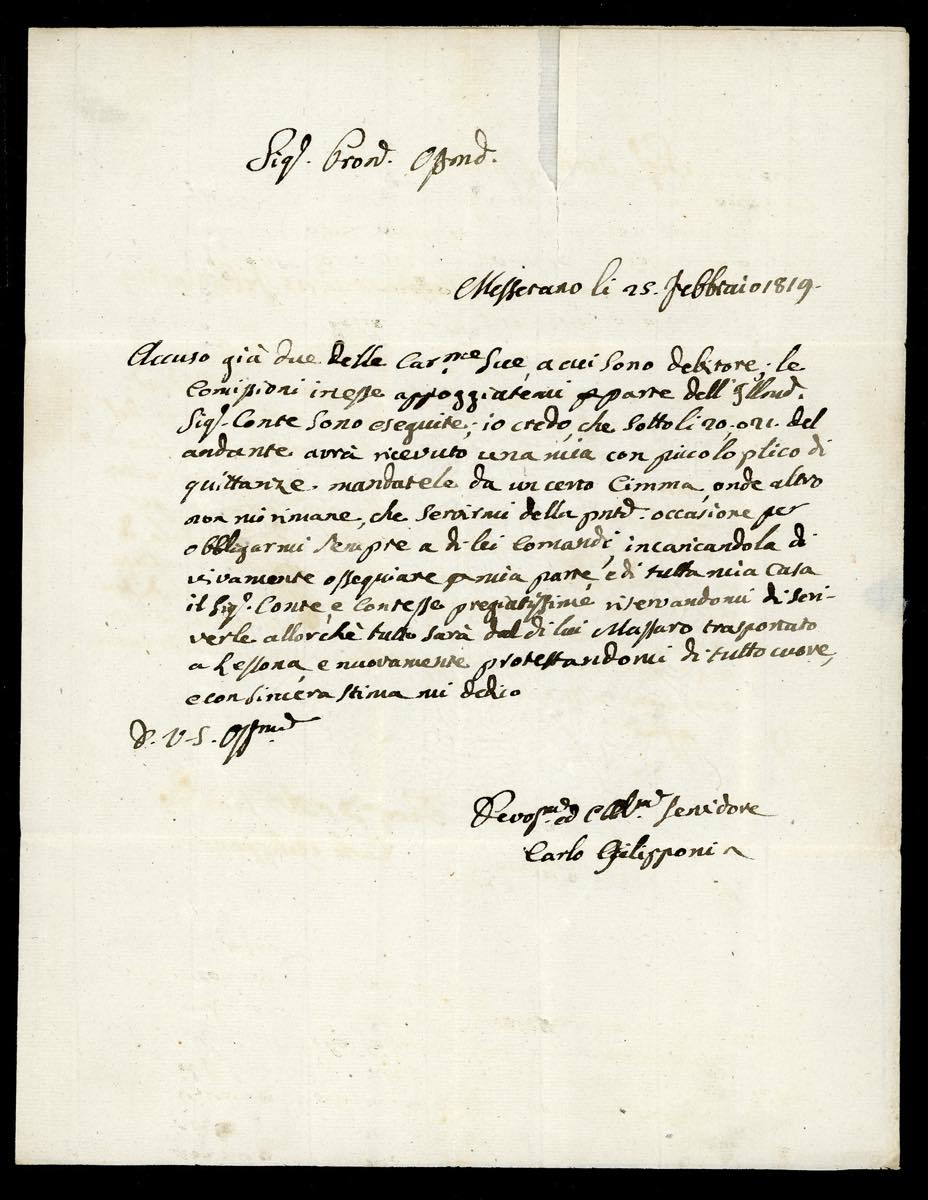 Sig.r Pron. Ossmo.
Messerano li 25. Febbraio 1819.
Accuso già due delle Car.me Sue, a cui sono debitore; le
Comissioni in esse appoggiatemi p parte dell'Illmo.
Sig.r Conte sono eseguite; io credo, che sotto li 20. o 21. del
andante avrà ricevuto una mia con piccolo plico di
quittanze mandatele da un certo Cimma, onde altro
non mi rimane, che servirmi della pnte. occasione per
obbligarmi sempre a di lei Comandi, incaricandola di
vivamente ossequiare p mia parte, e di tutta mia Casa
il Sig.r Conte, e Contesse pregiatissime riservandomi di scri-
verle allorchè tutto sarà dal di lui Massaro trasportato
a Lessona, e nuovamente protestandomi di tutto cuore,
e con sincera stima mi dedico
D. V. S. Ossma
Devos.mo ed Obb.mo Servidore
Carlo Filipponi